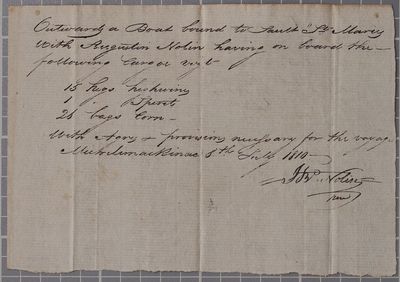 Outwards a Boat bound to Sault St. Maries
With Augustin Nolin having on board the
following Cargoe vizt
15 kegs highwines
1 " Spirits
26 bags Corn
With Stores & provisions necessary for the voyage
Michilimackinac 8th July 1810
Nolin